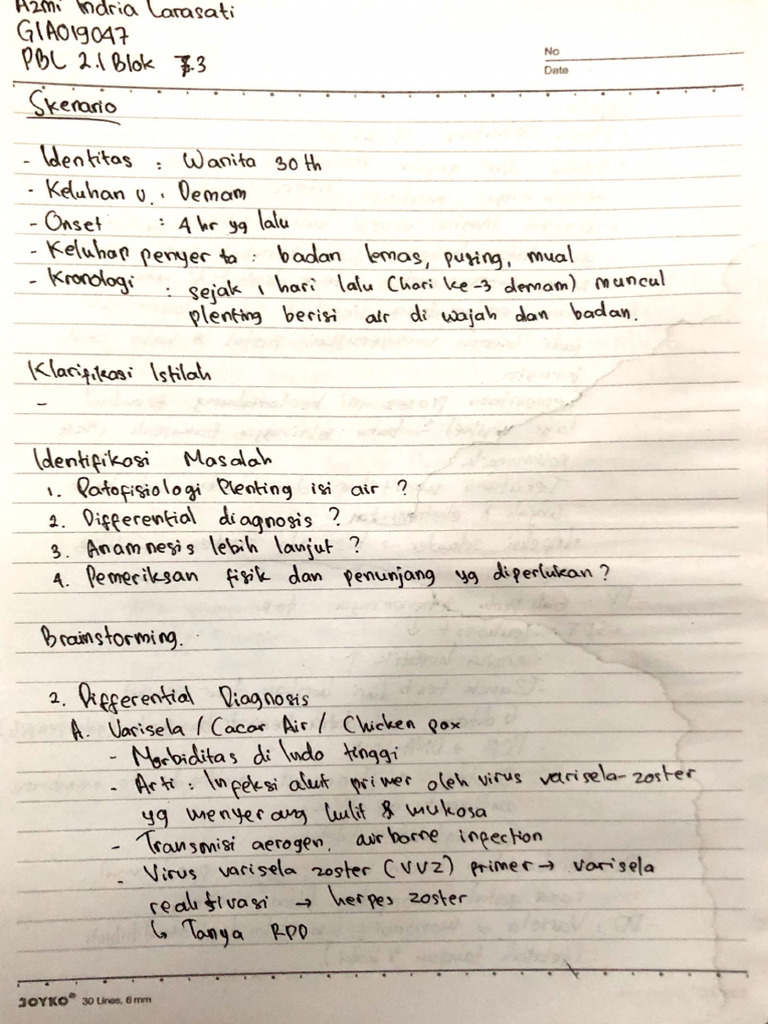 Azmi Indria Larasati
G1A019047
PBL 2.1 Blok 3.3
No
Date
Skenario
- Identitas : Wanita 30 th
- Keluhan U. : Demam
- Onset : 4 hr yg lalu
- Keluhan penyerta : badan lemas, pusing, mual
- Kronologi : sejak 1 hari lalu (hari ke-3 demam) muncul
plenting berisi air di wajah dan badan.
Klarifikasi Istilah
-
Identifikasi Masalah
1. Patofisiologi Plenting isi air ?
2. Differential diagnosis ?
3. Anamnesis lebih lanjut ?
4. Pemeriksan fisik dan penunjang yg diperlukan ?
Brainstorming.
2. Differential Diagnosis
A. Varisela / Cacar Air / Chicken pox
- Morbiditas di Indo tinggi
- Arti : Infeksi akut primer oleh virus varisela-zoster
yg menyerang kulit & mukosa
- Transmisi aerogen, airborne infection
- Virus varisela zoster (VVZ) primer → varisela
reaktivasi → herpes zoster
↳ Tanya RPD
JOYKO® 30 Lines, 6 mm